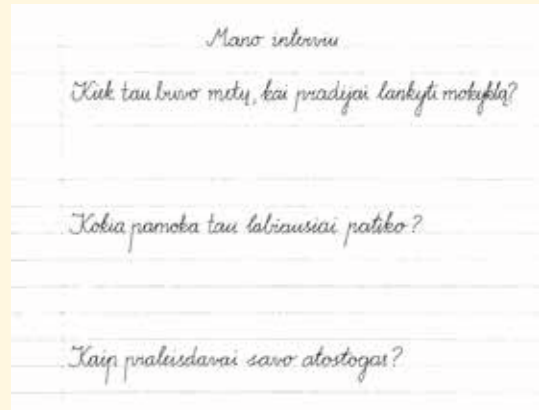 Mano interviu
Kiek tau buvo metų, kai pradėjai lankyti mokyklą?
Kokia pamoka tau labiausiai patiko?
Kaip praleisdavai savo atostogas?